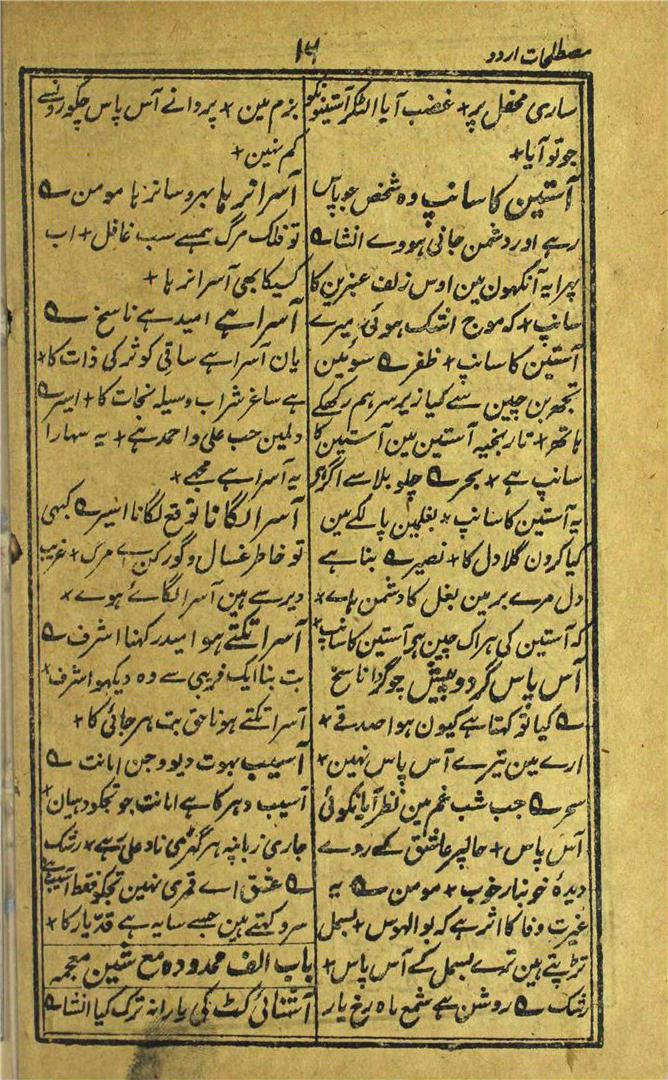 مصطلحات اردو
۱۳
ساری محفل پر + غضب آیا الٹکر آستینونکو
جو تو آیا +
آستین کا سانپ وہ شخص جو پاس
رہے اور دشمن جانی ہووے انشا ؎
پھرا یہ آنکھون مین اوس زلف عنبرین کا
سانپ + کہ موج اشک ہوئی میرے
آستین کا سانپ + ظفر ؎ سوئین
تجھ بن چین سے کیا زیر سر ہم رکھکے
ہاتھ + تار بخیہ آستین مین آستین کا
سانپ ہے + بحر ؎ چلو بلا سے اگر ہی
یہ آستین کا سانپ + بغلمین پالکے مین
کیا کرون گلا دل کا + نصیر ؎ بنا ہے
دل مرے بر مین بغل کا دشمن ہاے +
کہ آستین کی ہر اک چین ہی آستین کا سانپ +
آس پاس گرد و پیش چوگرد ناسخ
؎ کیا تو کہتا ہے کیون ہوا صدقے +
ارے مین تیرے آس پاس نہین +
سحر ؎ جب شب غم مین نظر آیا نکوئی
آس پاس + حالپر عاشق کے روے
دیدۂ خونبار خوب + مومن ؎ یہ
غیرت وفا کا اثر ہے کہ بوالہوس + بسمل
تڑپتے ہین ترے بسمل کے آس پاس +
رشک ؎ روشن ہے شمع ماہ رخ یار
بزم مین + پروانے آس پاس چکور ونسے
کم نہین +
آسرا نرہا بھروسا نرہا مومن ؎
تو فلک مرگ ہمسے سب غافل + اب
کسیکا بھی آسرا نرہا +
آسرا ہے امید ہے ناسخ ؎
یان آسرا ہے ساقی کوثر کی ذات کا +
ہے ساغر شراب وسیلہ نجات کا + اسیر ؎
دلمین حب علی و احمد ہے + یہ سہارا
یہ آسرا ہے مجھے +
آسرا لگانا توقع لگانا اسیر ؎ کبھی
تو خاطر غسال و گور کن اے مرگ + غریب
دیر سے ہین آسرا لگائے ہوے +
آسرا تکتے ہو امید رکہنا اشرف ؎
بت بنا ایک فریبی سے وہ دیکھو اشرف +
آسرا تکتے ہو ناحق بت ہرجائی کا +
آسیب بہوت دیو و جن امانت ؎
آسیب دہر کا ہے امانت جو تجکو دہیان +
جاری زبانپہ ہر گھڑی ناد علی رہے + رشک
؎ عشق اے قمری نہین تجکو فقط آسیب ہے
سرو کہتے ہین جسے سایہ ہے قد یار کا +
باب الف ممدودہ مع شین معجمہ
آشنائی کٹ کی یارانہ ترک کیا انشا ؎